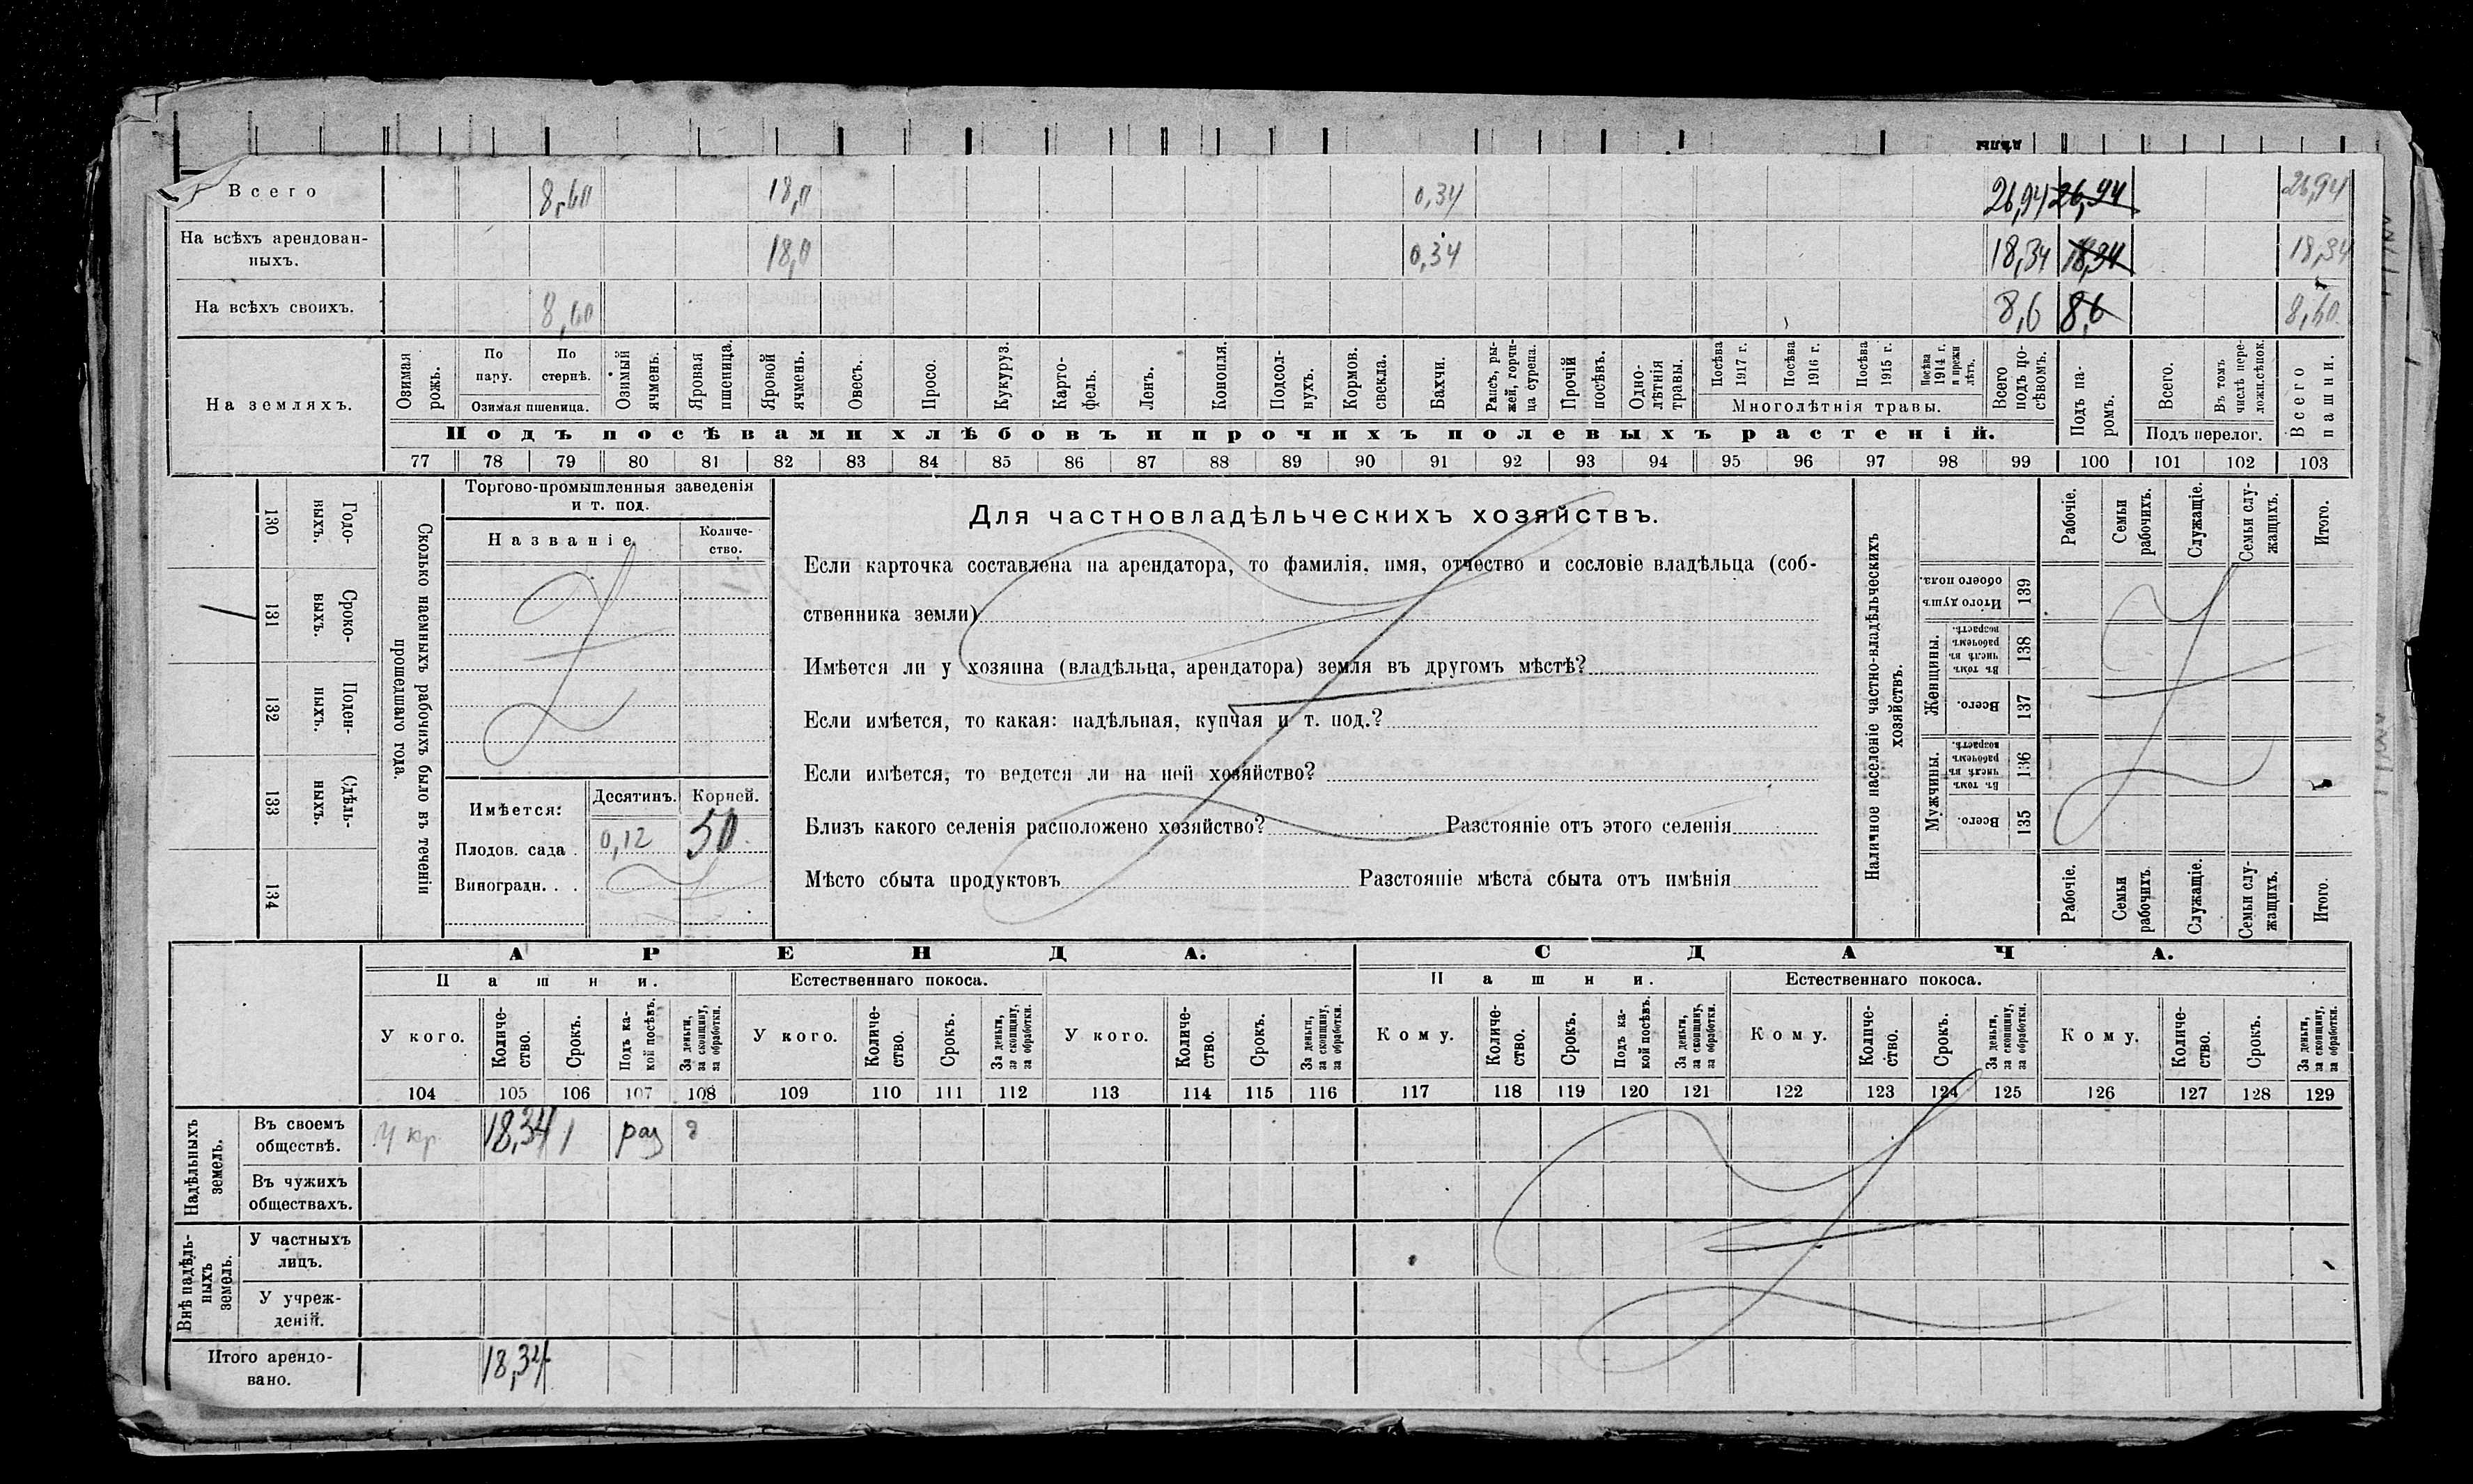 дѣлы
Всего 8,60 18,0 0,34 26,94 26,94 26,94
На всѣхъ арендован-
ныхъ. 18,0 0,34 18,34 18,34 18,34
На всѣхъ своихъ. 8,60 8,6 8,6 8,60
На земляхъ.
Озимая рожь.
По пару.
По стернѣ.
Озимая пшеница.
Озимый ячмень.
Яровая пшеница.
Яровой ячмень.
Овесъ.
Просо.
Кукуруз.
Карто-
фель.
Ленъ.
Конопля.
Подсол-
нухъ.
Кормов.
свекла.
Бахчи.
Рапсъ, ры-
жей, горчи-
ца сурепа.
Прочій
посѣвъ.
Одно-
лѣтнія
травы.
Посѣва
1917 г.
Посѣва
1916 г.
Посѣва
1915 г.
Посѣва
1914 г.
и прежн
лѣтъ.
Многолѣтнія травы.
Всего
подъ по-
сѣвомъ.
Подъ па-
ромъ.
Всего.
Въ томъ
числѣ пере-
ложн.сѣнок.
Подъ перелог.
Всего
пашни.
Подъ посѣвами хлѣбовъ и прочихъ полевыхъ растеній.
77 78 79 80 81 82 83 84 85 86 87 88 89 90 91 92 93 94 95 96 97 98 99 100 101 102 103
130 Годо-
выхъ.
131 Сроко-
выхъ.
132 Поден-
ныхъ.
133 Сдѣль-
ныхъ.
134
Сколько наемныхъ рабочихъ было въ теченіи
прошедшаго года.
Торгово-промышленныя заведенія
и т. под.
Названіе.
Количе-
ство.
Имѣется: Десятинъ. Корней.
Плодов. сада . 0,12 50.
Виноградн. . .
Для частновладѣльческихъ хозяйствъ.
Если карточка составлена на арендатора, то фамилія, имя, отчество и сословіе владѣльца (соб-
ственника земли)
Имѣется ли у хозяина (владѣльца, арендатора) земля въ другомъ мѣстѣ?
Если имѣется, то какая: надѣльная, купчая и т. под.?
Если имѣется, то ведется ли на ней хозяйство?
Близъ какого селенія расположено хозяйство? Разстояніе отъ этого селенія
Мѣсто сбыта продуктовъ Разстояніе мѣста сбыта отъ имѣнія
Наличное населеніе частно-владѣльческихъ
хозяйствъ.
Рабочіе.
Семьи
рабочихъ.
Служащіе.
Семьи слу-
жащихъ.
Итого.
Итого душъ
обоего пола.
139
Женщины.
Въ томъ
числѣ въ
рабочемъ
возрастѣ.
138
Всего.
137
Мужчины.
Въ томъ
числѣ въ
рабочемъ
возрастѣ.
136
Всего.
135
Рабочіе.
Семьи
рабочихъ.
Служащіе.
Семьи слу-
жащихъ.
Итого.
АРЕНДА. СДАЧА.
Пашни. Естественнаго покоса. Пашни. Естественнаго покоса.
У кого.
Количе-
ство.
Срокъ.
Подъ ка-
кой посѣвъ.
За деньги,
за скопщину,
за обработки.
У кого.
Количе-
ство.
Срокъ.
За деньги,
за скопщину,
за обработки.
У кого.
Количе-
ство.
Срокъ.
За деньги,
за скопщину,
за обработки.
Кому.
Количе-
ство.
Срокъ.
Подъ ка-
кой посѣвъ.
За деньги,
за скопщину,
за обработки.
Кому.
Количе-
ство.
Срокъ.
За деньги,
за скопщину,
за обработки.
Кому.
Количе-
ство.
Срокъ.
За деньги,
за скопщину,
за обработки.
104 105 106 107 108 109 110 111 112 113 114 115 116 117 118 119 120 121 122 123 124 125 126 127 128 129
Надѣльныхъ
земель.
Въ своемъ
обществѣ. кр 18,34 1 раз
Въ чужихъ
обществахъ.
Внѣ надѣль-
ныхъ
земель.
У частныхъ
лицъ.
У учреж-
деній.
Итого арендо-
вано. 18,34